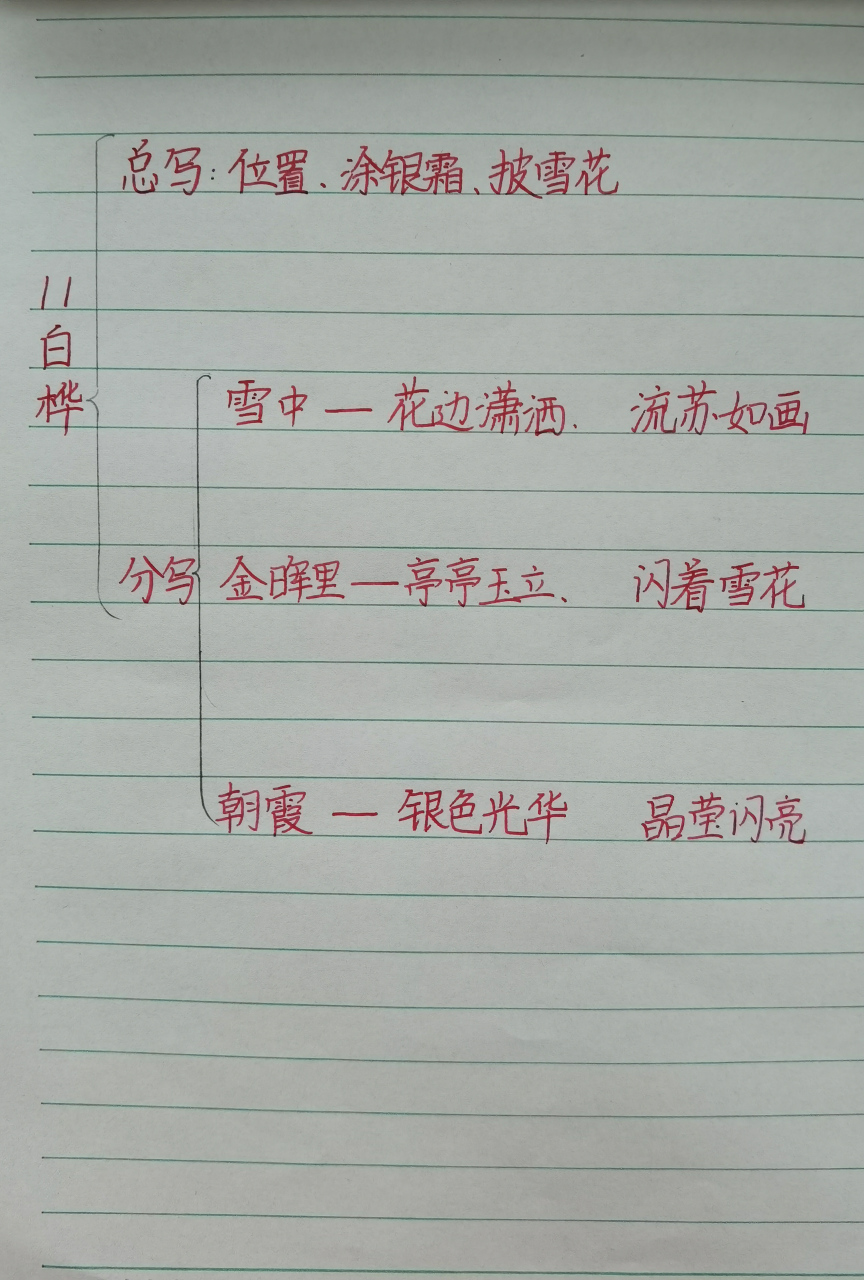 总写:位置、涂银霜、披雪花
11
白
桦
雪中 — 花边潇洒、 流苏如画
分写 金晖里—亭亭玉立、 闪着雪花
朝霞 — 银色光华 晶莹闪亮